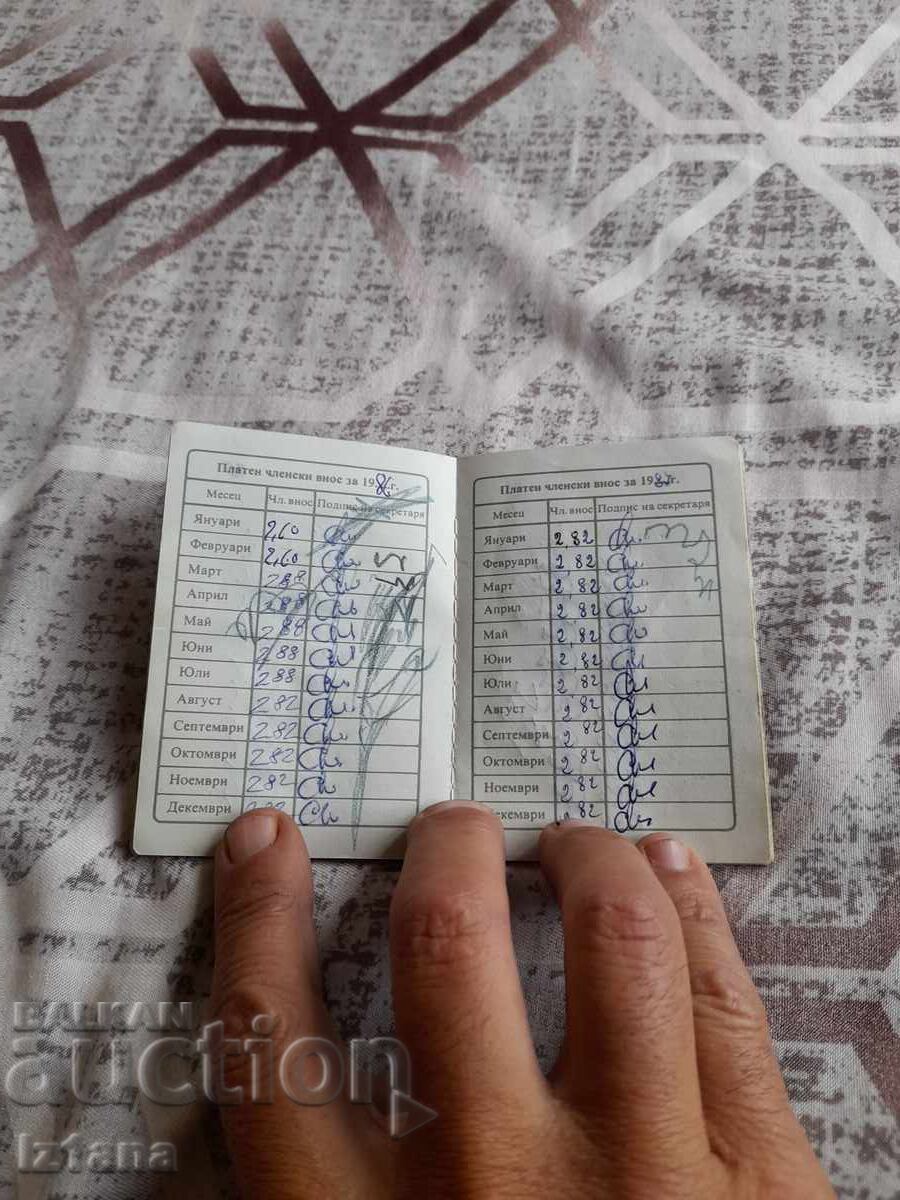 Платен членски внос за 1986 г.
Месец Чл. внос Подпис на секретаря
Януари 2,60
Февруари 2,60
Март 288
Април 288
Май 288
Юни 288
Юли 288
Август 282
Септември 282
Октомври 282
Ноември 282
Декември
Платен членски внос за 1987 г.
Месец Чл. внос Подпис на секретаря
Януари 2,82
Февруари 2,82
Март 2,82
Април 2,82
Май 2,82
Юни 2,82
Юли 2,82
Август 2,82
Септември 2,82
Октомври 2,82
Ноември 2,82
Декември 2,82
BALKAN
auction
Iztana